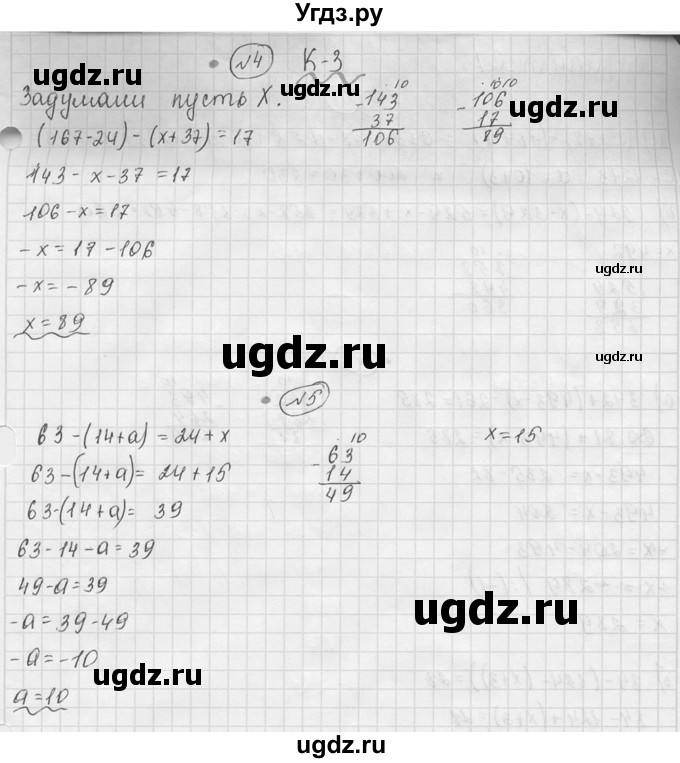 Угдз.ру
№4 К-3
Задумали пусть X.
(167-24) - (x+37) = 17
143 - x - 37 = 17
106 - x = 17
- x = 17 - 106
- x = - 89
x = 89
10
- 143
37
106
10 10
- 106
17
89
ugdz.ru
ugdz.ru
ugdz.ru
ugdz.ru
ugdz.ru
ugdz.ru
ugdz.ru
№5
63 - (14+a) = 24 + x
63 - (14+a) = 24 + 15
63 - (14+a) = 39
63 - 14 - a = 39
49 - a = 39
- a = 39 - 49
- a = - 10
a = 10
10
- 63
14
49
x = 15
ugdz.ru
ugdz.ru
ugdz.ru
ugdz.ru
ugdz.ru